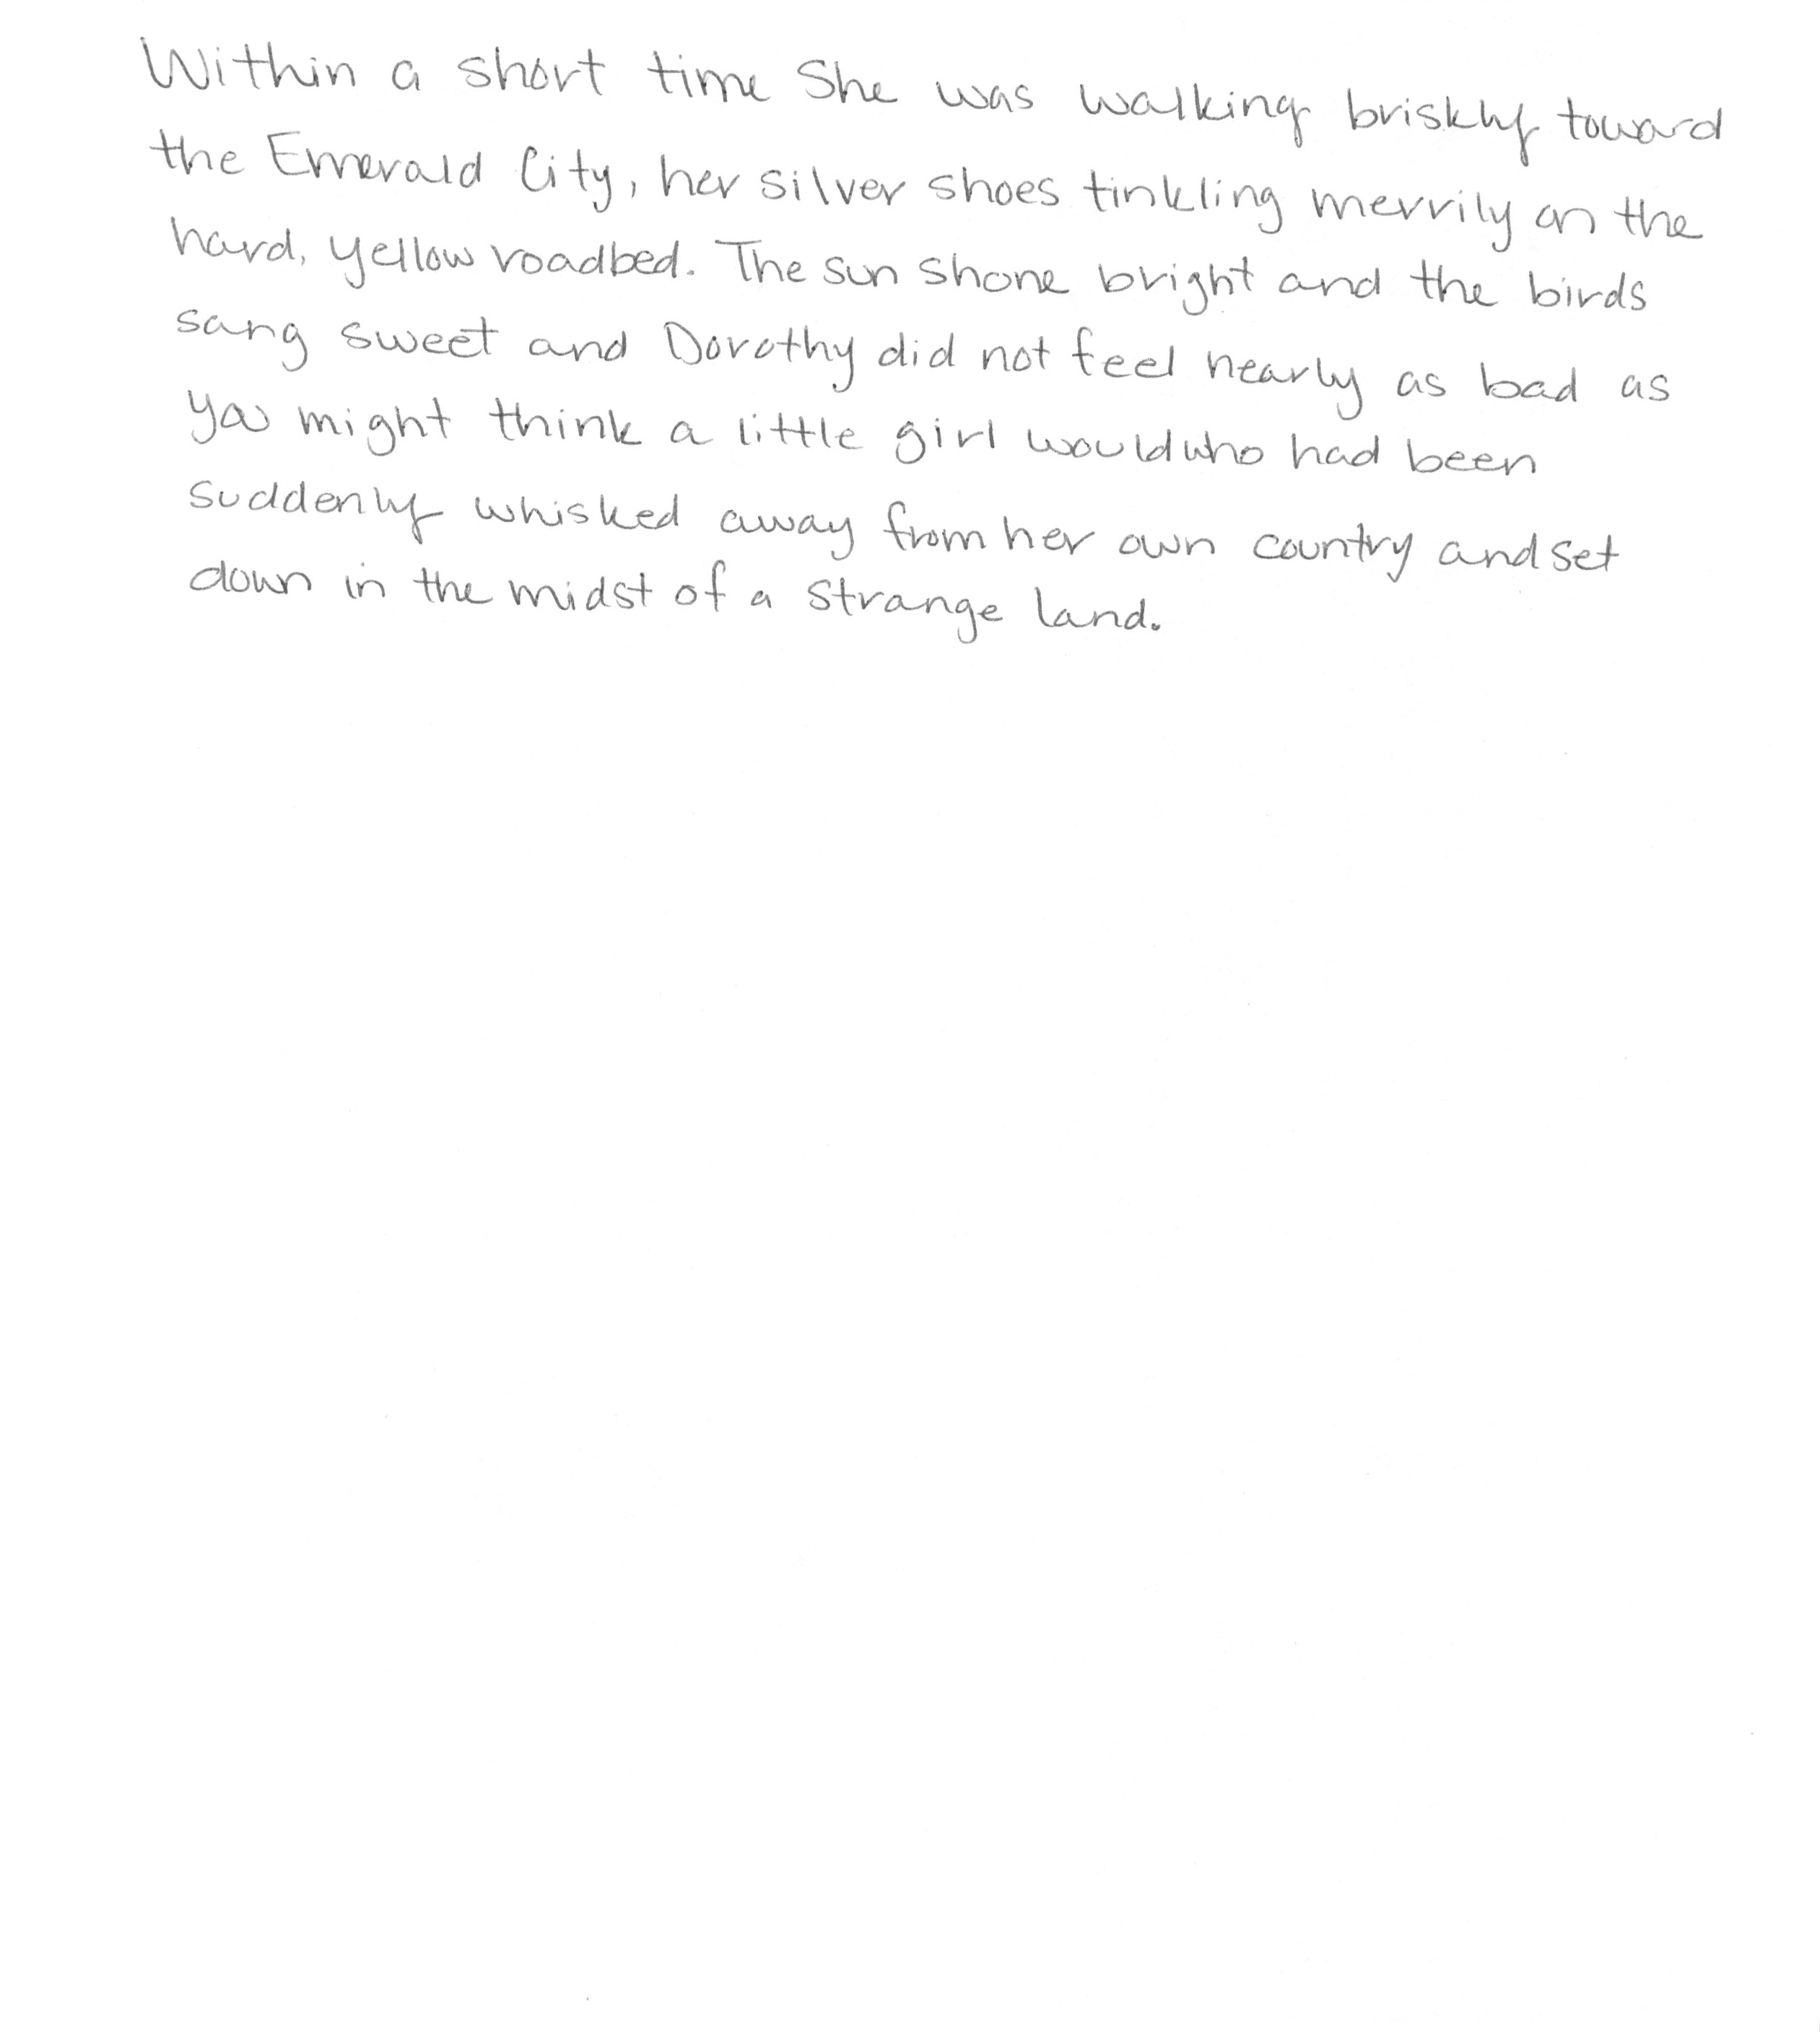 Within a short time She was walking briskly toward
the Emerald City, her silver shoes tinkling merrily on the
hard, yellow roadbed. The sun shone bright and the birds
sang sweet and Dorothy did not feel nearly as bad as
you might think a little girl would who had been
suddenly whisked away from her own country and set
down in the midst of a strange land.